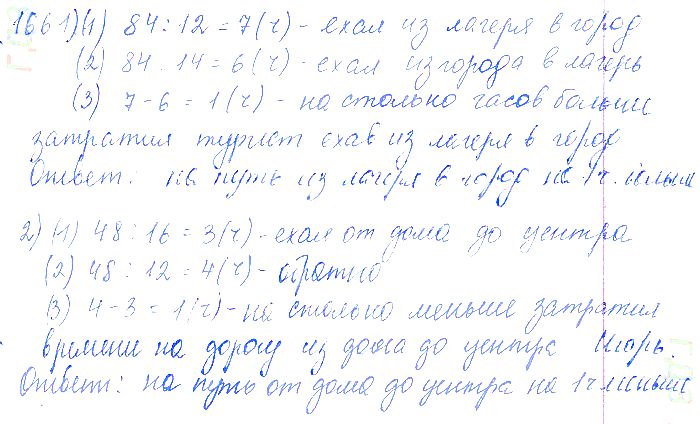 166 1) (1) 84 : 12 = 7 (ч) - ехал из лагеря в город
(2) 84 : 14 = 6 (ч) - ехал из города в лагерь
(3) 7 - 6 = 1 (ч) - на столько часов больше
затратил турист ехав из лагеря в город
Ответ: на путь из лагеря в город на 1 ч. больше
2) (1) 48 : 16 = 3 (ч) - ехал от дома до центра
(2) 48 : 12 = 4 (ч) - обратно
(3) 4 - 3 = 1 (ч) - на столько меньше затратил
времени на дорогу из дома до центра Игорь.
Ответ: на путь от дома до центра на 1 ч меньше